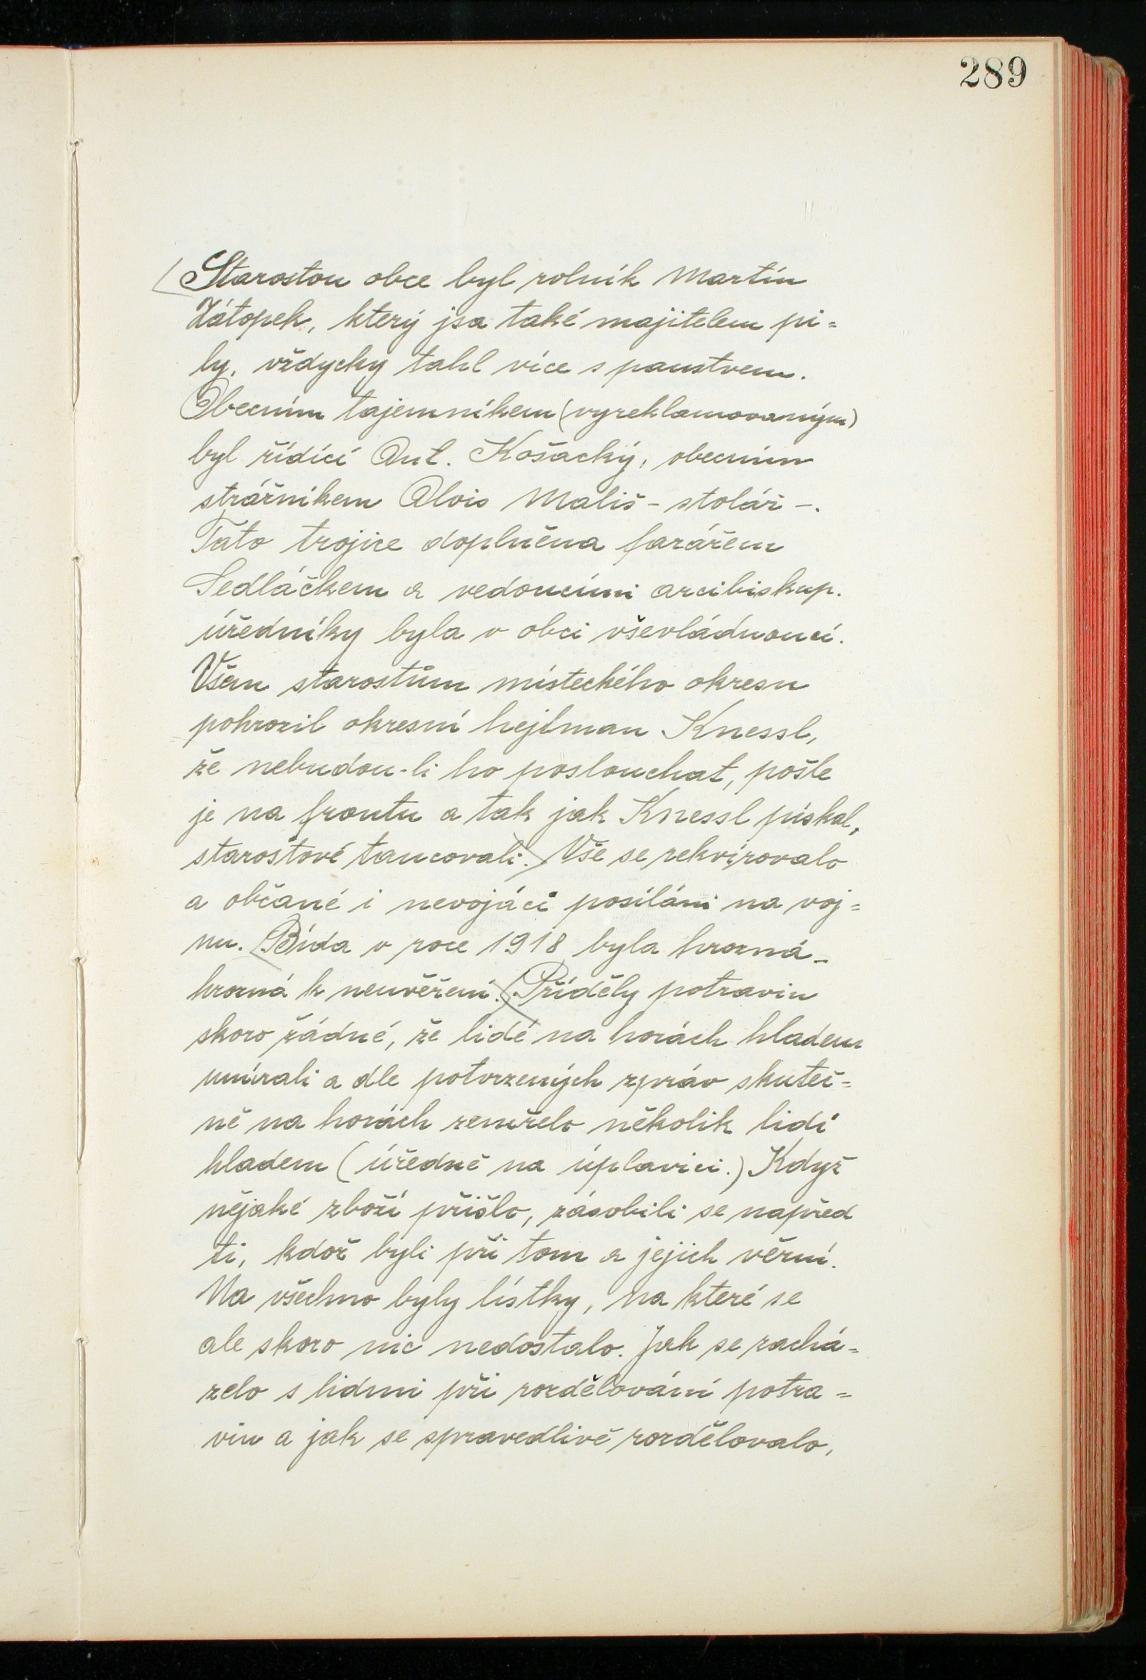 289
Starostou obce byl rolník Martin
Zátopek, který jsa také majitelem pi=
ly, vždycky táhl více s panstvem.
Obecním tajemníkem (vyreklamovaným)
byl řídící Ant. Košacký, obecním
strážníkem Alois Mališ - stolář -.
Tato trojice doplněna farářem
Sedláčkem a vedoucími arcibiskup.
úředníky byla v obci vševládnoucí.
Všem starostům místeckého okresu
pohrozil okresní hejtman Knessl,
že nebudou-li ho poslouchat, pošle
je na frontu a tak jak Knessl pískal,
starostové tancovali. Vše se rekvírovalo
a občané i nevojáci posíláni na voj=
nu. Bída v roce 1918 byla hrozná -
hrozná k neuvěření. Příděly potravin
skoro žádné, že lidé na horách hladem
umírali a dle potvrzených zpráv skuteč=
ně na horách zemřelo několik lidí
hladem (úředně na úplavici.) Když
nějaké zboží přišlo, zásobili se napřed
ti, kdož byli při tom a jejich věrní.
Na všechno byly lístky, na které se
ale skoro nic nedostalo. Jak se zachá=
zelo s lidmi při rozdělování potra=
vin a jak se spravedlivě rozdělovalo,